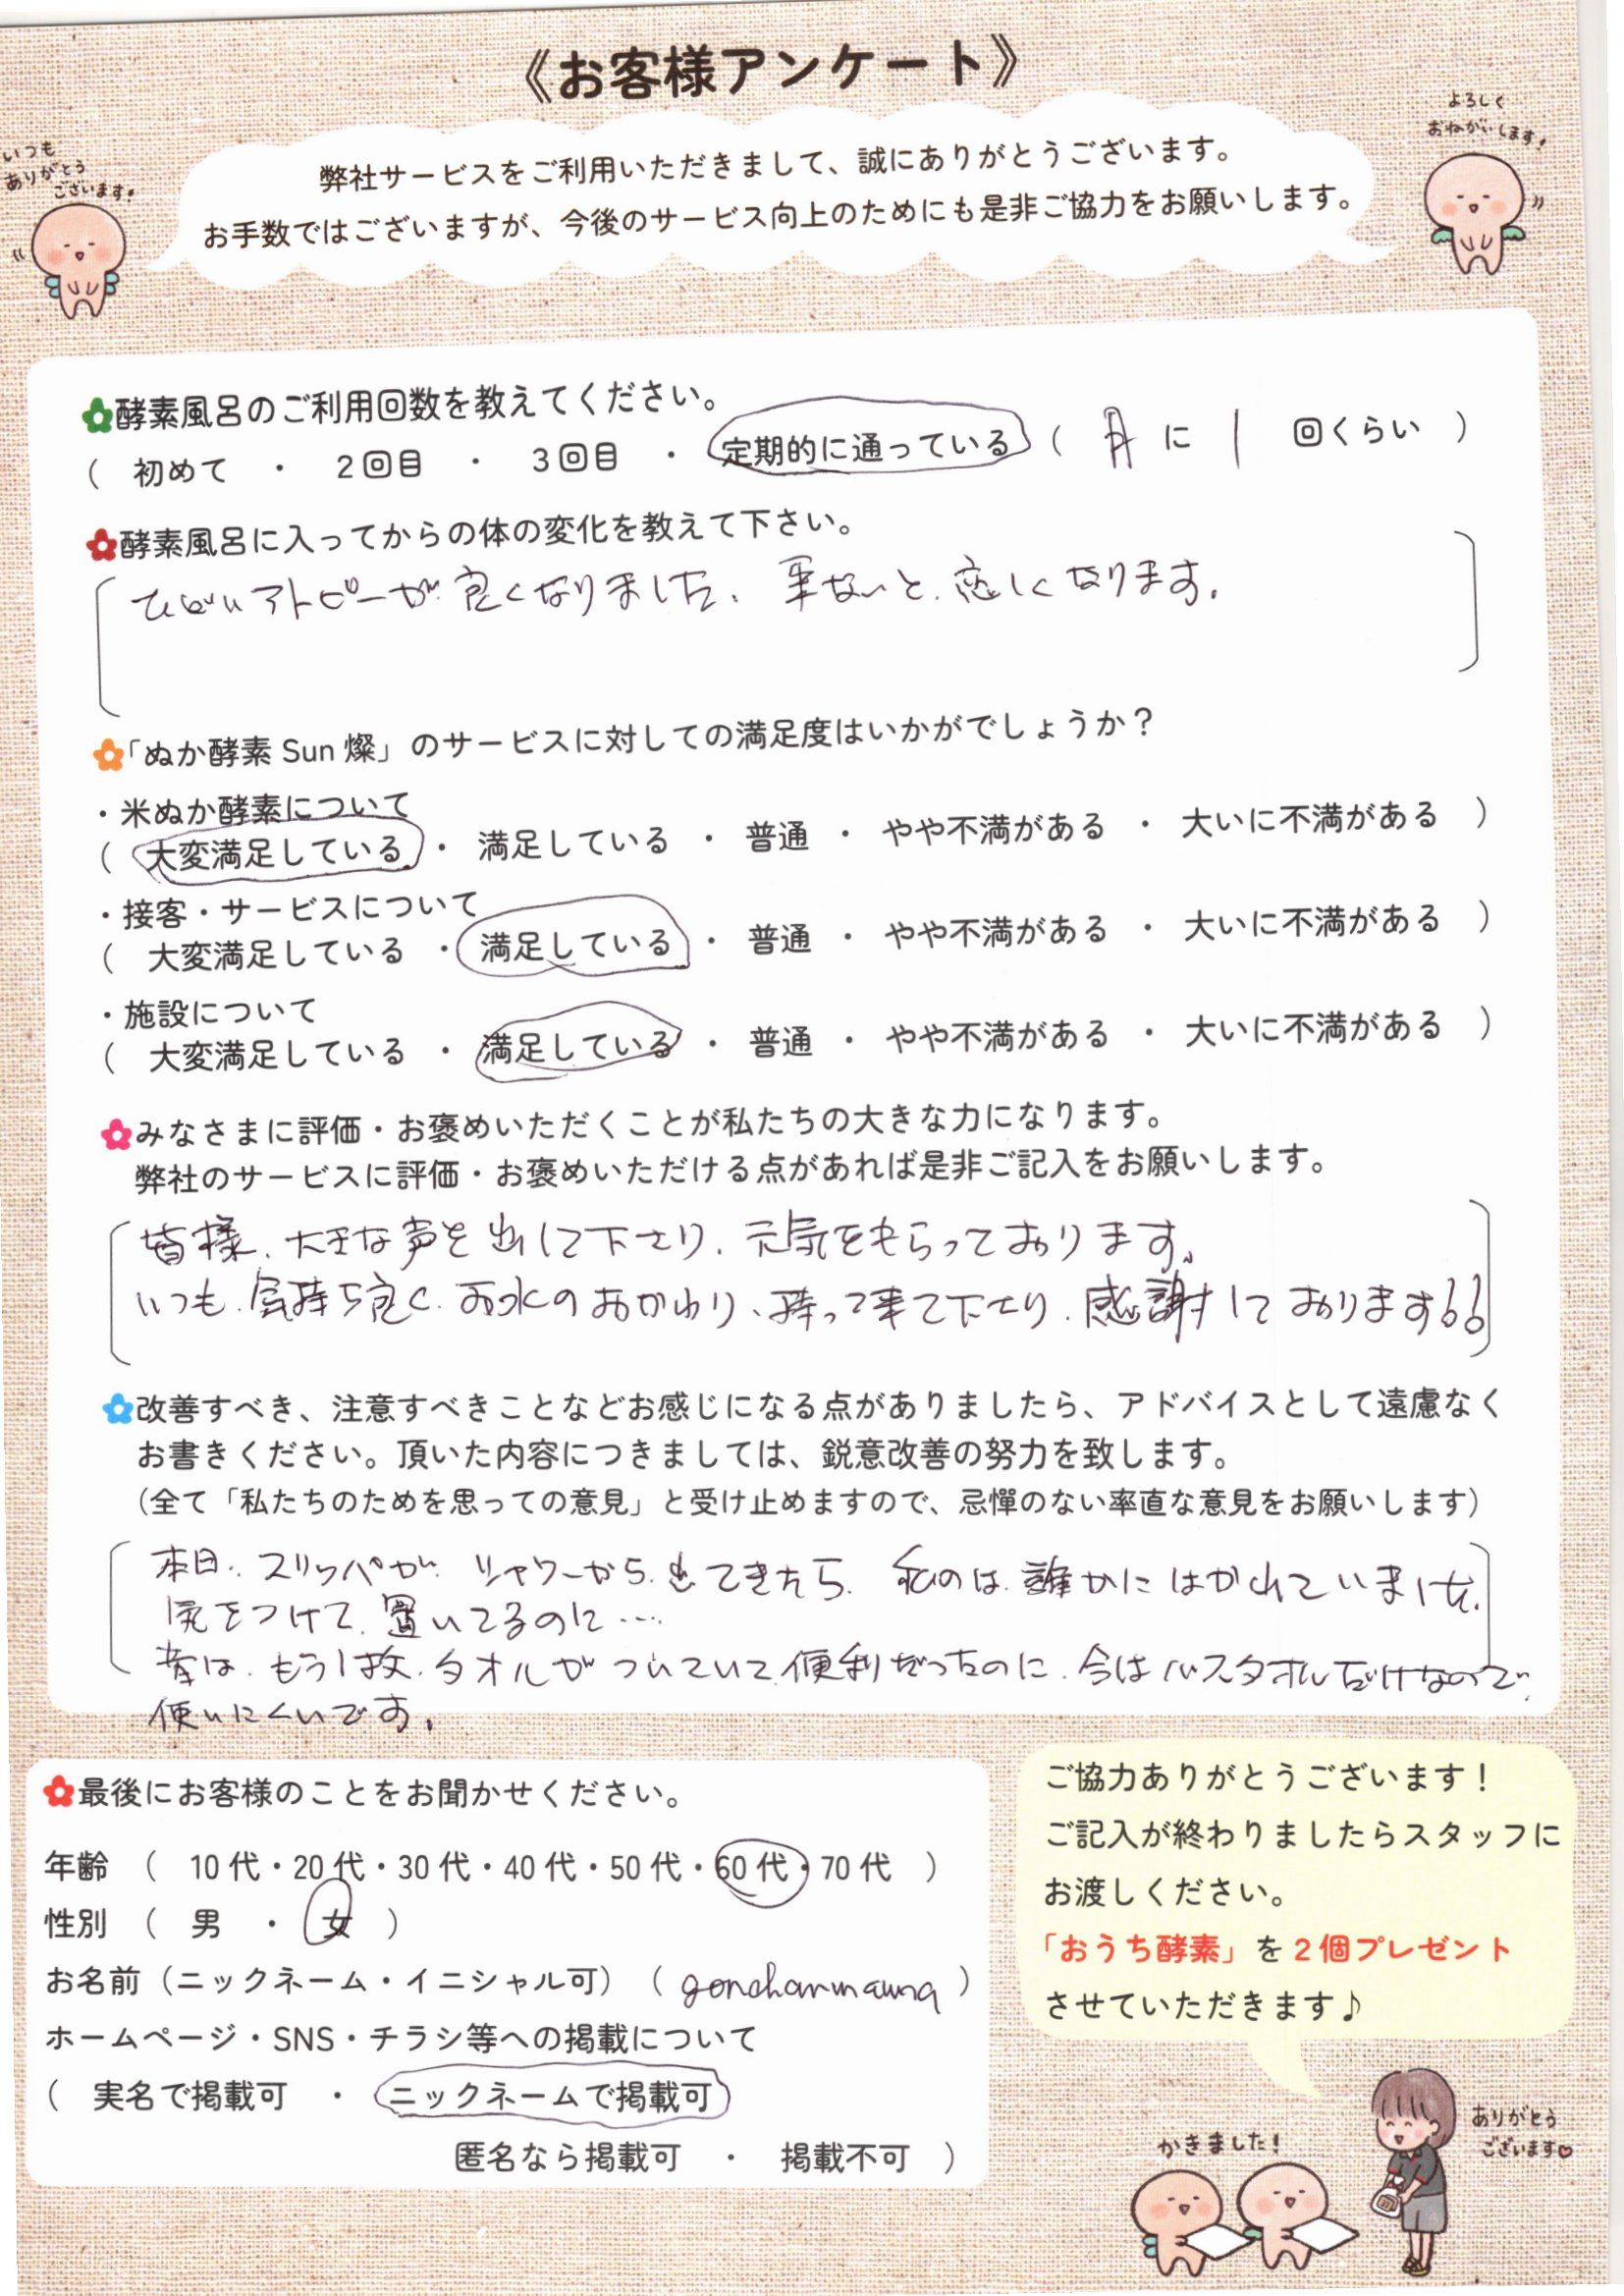 《お客様アンケート》
いつも
ありがとう
ございます!
よろしく
おねがいします!
弊社サービスをご利用いただきまして、誠にありがとうございます。
お手数ではございますが、今後のサービス向上のためにも是非ご協力をお願いします。
酵素風呂のご利用回数を教えてください。
( 初めて ・ 2回目 ・ 3回目 ・ 定期的に通っている ( 月 に 1 回くらい )
酵素風呂に入ってからの体の変化を教えて下さい。
ひどいアトピーが良くなりました。来ないと、恋しくなります。
「ぬか酵素 Sun 燦」のサービスに対しての満足度はいかがでしょうか?
・米ぬか酵素について
( 大変満足している ・ 満足している ・ 普通 ・ やや不満がある ・ 大いに不満がある )
・接客・サービスについて
( 大変満足している ・ 満足している ・ 普通 ・ やや不満がある ・ 大いに不満がある )
・施設について
( 大変満足している ・ 満足している ・ 普通 ・ やや不満がある ・ 大いに不満がある )
みなさまに評価・お褒めいただくことが私たちの大きな力になります。
弊社のサービスに評価・お褒めいただける点があれば是非ご記入をお願いします。
皆様、大きな声を出して下さり、元気をもらっております。
いつも、気持ち良く、お水のおかわり、持って来て下さり、感謝しております!!
改善すべき、注意すべきことなどお感じになる点がありましたら、アドバイスとして遠慮なく
お書きください。頂いた内容につきましては、鋭意改善の努力を致します。
(全て「私たちのためを思っての意見」と受け止めますので、忌憚のない率直な意見をお願いします)
本日、スリッパが、シャワーから出てきたら、私のは、誰かにはかれていました。
気をつけて、置いてるのに…
昔は、もう1枚、タオルがついていて便利だったのに、今はバスタオルだけなので、
使いにくいです。
最後にお客様のことをお聞かせください。
年齢 ( 10代・20代・30代・40代・50代・60代・70代 )
性別 ( 男 ・ 女 )
お名前(ニックネーム・イニシャル可) ( gonchanmama )
ホームページ・SNS・チラシ等への掲載について
( 実名で掲載可 ・ ニックネームで掲載可
匿名なら掲載可 ・ 掲載不可 )
ご協力ありがとうございます!
ご記入が終わりましたらスタッフに
お渡しください。
「おうち酵素」を2個プレゼント
させていただきます♪
かきました!
ありがとう
ございます♡